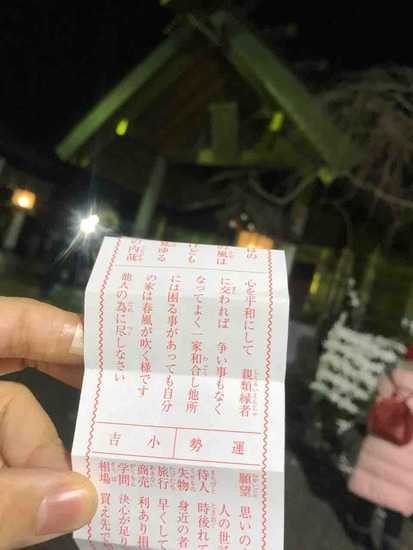 の風は
けども
の内哉
心を平和にして 親類縁者
に交われば 争い事もなく
なってよく一家和合し他所
には困る事があっても自分
の家は春風が吹く様です
他人の為に尽しなさい
運勢 小吉
願望 思いの
人の世
待人 時後れて
失物 身近の者
旅行 早くして
商売 利あり損
学問 決心が足り
相場 買え先で